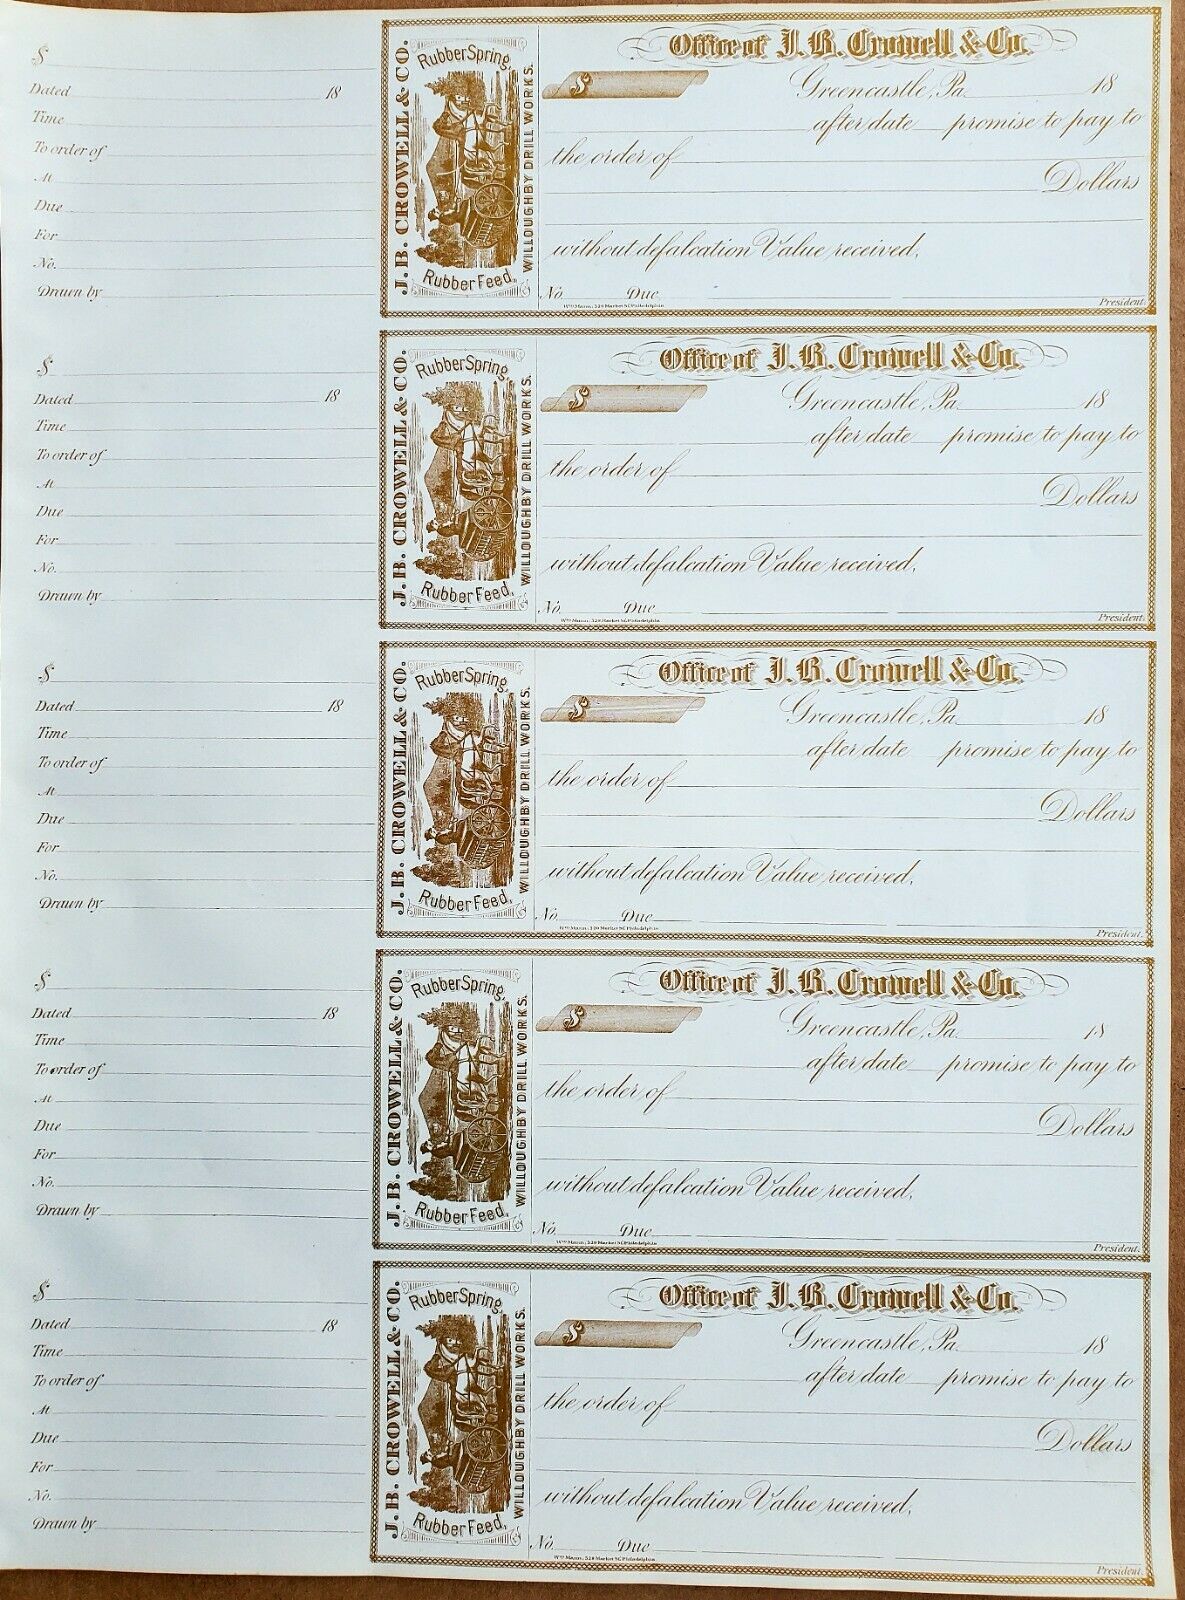 $
Dated 18
Time
To order of
At
Due
For
No.
Drawn by
J. B. CROWELL & CO.
Rubber Spring,
Rubber Feed,
WILLOUGHBY DRILL WORKS.
Office of J. B. Crowell & Co.
$
Greencastle, Pa. 18
after date promise to pay to
the order of
Dollars
without defalcation Value received,
No. Due
Wm Mann, 529 Market St. Philadelphia
President.
$
Dated 18
Time
To order of
At
Due
For
No.
Drawn by
J. B. CROWELL & CO.
Rubber Spring,
Rubber Feed,
WILLOUGHBY DRILL WORKS.
Office of J. B. Crowell & Co.
$
Greencastle, Pa. 18
after date promise to pay to
the order of
Dollars
without defalcation Value received,
No. Due
Wm Mann, 529 Market St. Philadelphia
President.
$
Dated 18
Time
To order of
At
Due
For
No.
Drawn by
J. B. CROWELL & CO.
Rubber Spring,
Rubber Feed,
WILLOUGHBY DRILL WORKS.
Office of J. B. Crowell & Co.
$
Greencastle, Pa. 18
after date promise to pay to
the order of
Dollars
without defalcation Value received,
No. Due
Wm Mann, 529 Market St. Philadelphia
President.
$
Dated 18
Time
To order of
At
Due
For
No.
Drawn by
J. B. CROWELL & CO.
Rubber Spring,
Rubber Feed,
WILLOUGHBY DRILL WORKS.
Office of J. B. Crowell & Co.
$
Greencastle, Pa. 18
after date promise to pay to
the order of
Dollars
without defalcation Value received,
No. Due
Wm Mann, 529 Market St. Philadelphia
President.
$
Dated 18
Time
To order of
At
Due
For
No.
Drawn by
J. B. CROWELL & CO.
Rubber Spring,
Rubber Feed,
WILLOUGHBY DRILL WORKS.
Office of J. B. Crowell & Co.
$
Greencastle, Pa. 18
after date promise to pay to
the order of
Dollars
without defalcation Value received,
No. Due
Wm Mann, 529 Market St. Philadelphia
President.